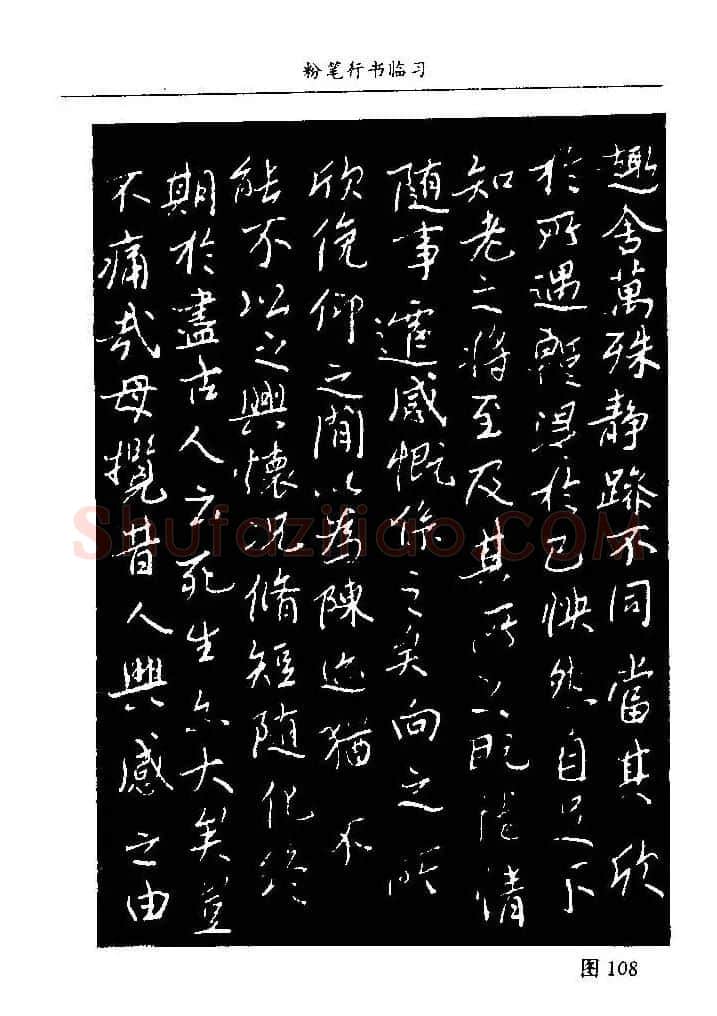 粉笔行书临习
趣舍萬殊静躁不同當其欣
於所遇輕得於己怏然自足不
知老之将至及其所之既倦情
随事遷感慨係之矣向之所
欣俛仰之間以為陳迹猶不
能不以之興懷况脩短随化終
期於盡古人云死生亦大矣豈
不痛哉母攬昔人興感之由
Shufaziliao.COM
图 108